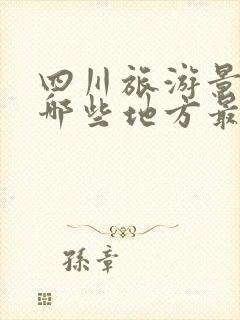 四川旅游景
哪些地方最
孫章